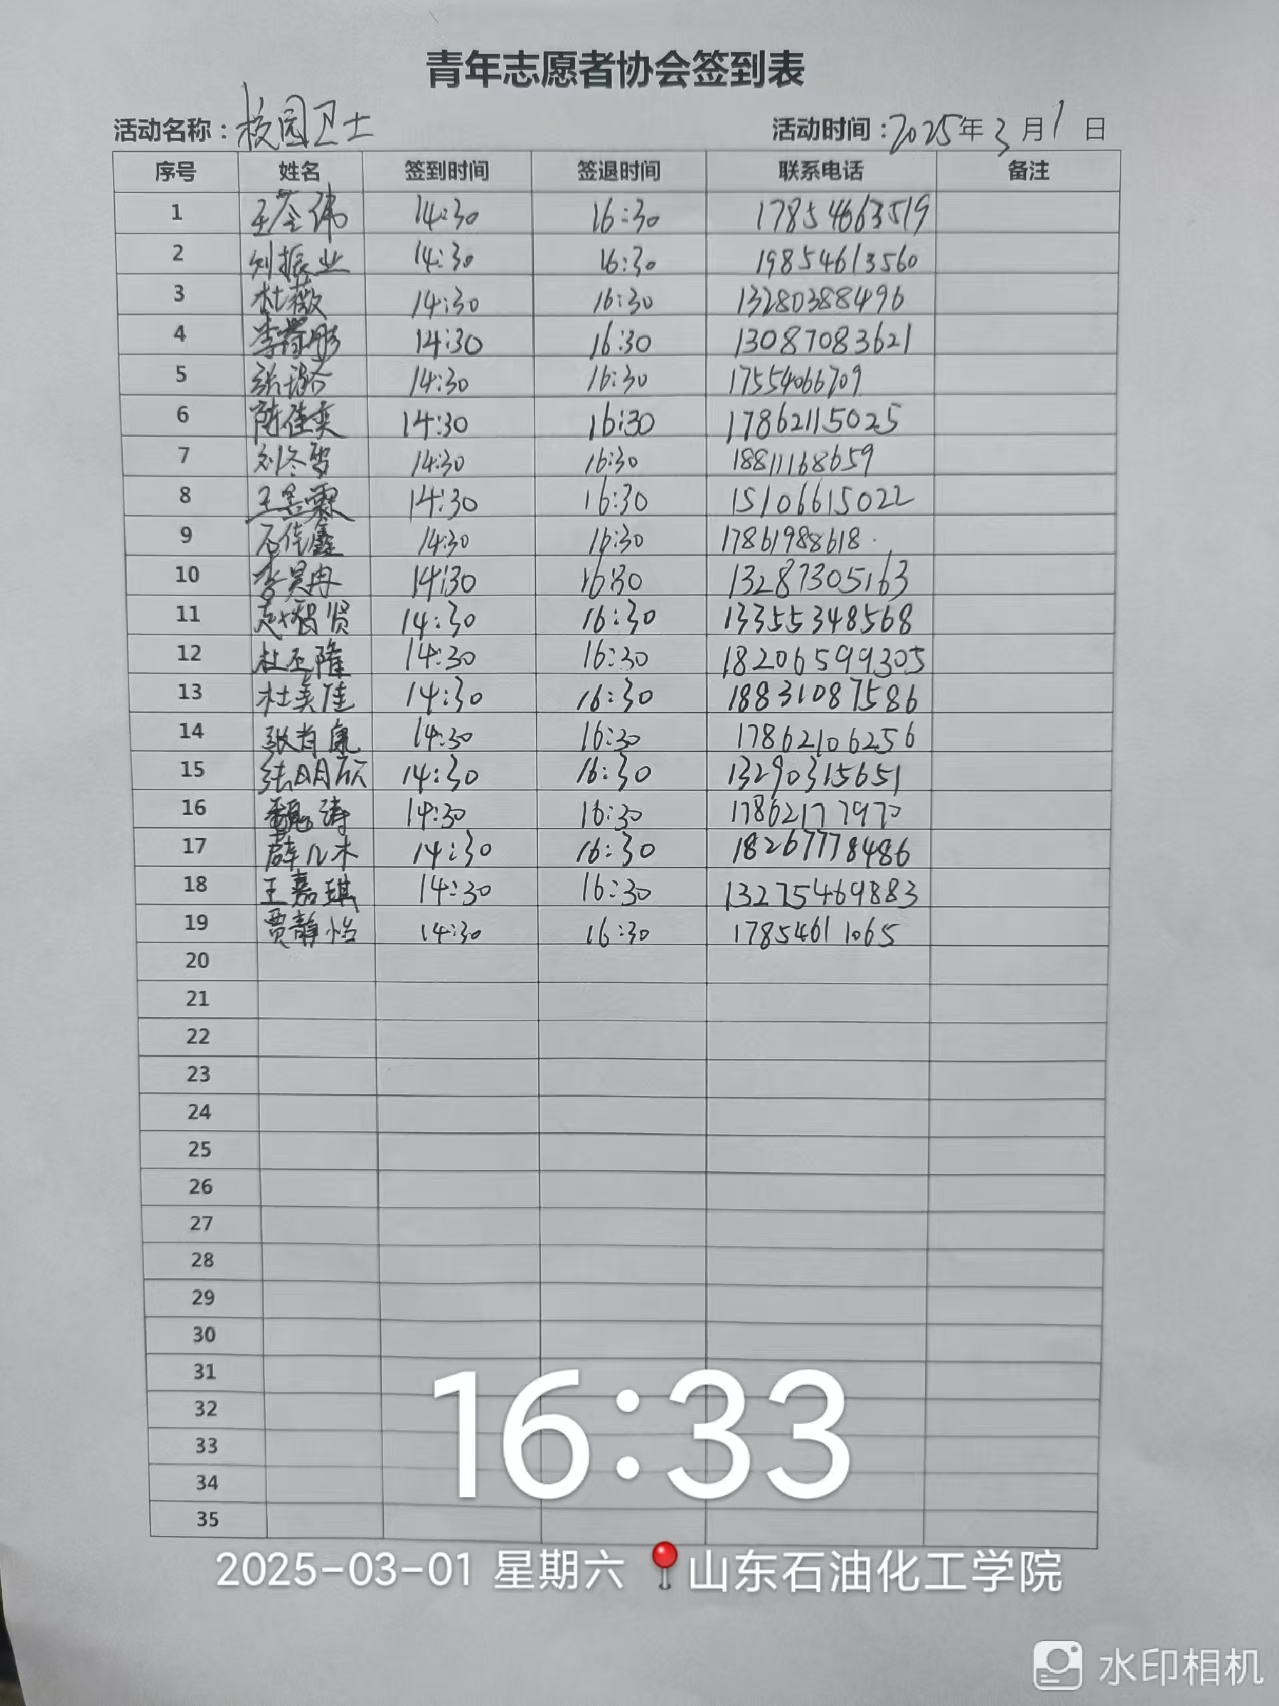 青年志愿者协会签到表
活动名称：校园卫士 活动时间：2025年3月1日
序号 姓名 签到时间 签退时间 联系电话 备注
1 14:30 16:30 17854663519
2 刘振业 14:30 16:30 19854613560
3 杜薇 14:30 16:30 13280388496
4 14:30 16:30 13087083621
5 14:30 16:30 17554066709
6 陈佳奕 14:30 16:30 17862115025
7 刘冬雪 14:30 16:30 18811168659
8 王昱霖 14:30 16:30 15106615022
9 石佳鑫 14:30 16:30 17861988618
10 李昊冉 14:30 16:30 13287305163
11 赵智贤 14:30 16:30 13355348568
12 杜丕隆 14:30 16:30 18206599305
13 杜奕佳 14:30 16:30 18831087586
14 张肖凯 14:30 16:30 17862106256
15 张明欣 14:30 16:30 13290315651
16 魏涛 14:30 16:30 17862177970
17 薛几木 14:30 16:30 18267778486
18 王嘉琪 14:30 16:30 13275469883
19 贾静怡 14:30 16:30 17854611065
20
21
22
23
24
25
26
27
28
29
30
31
32
33
34
35
16:33
2025-03-01 星期六 山东石油化工学院
水印相机